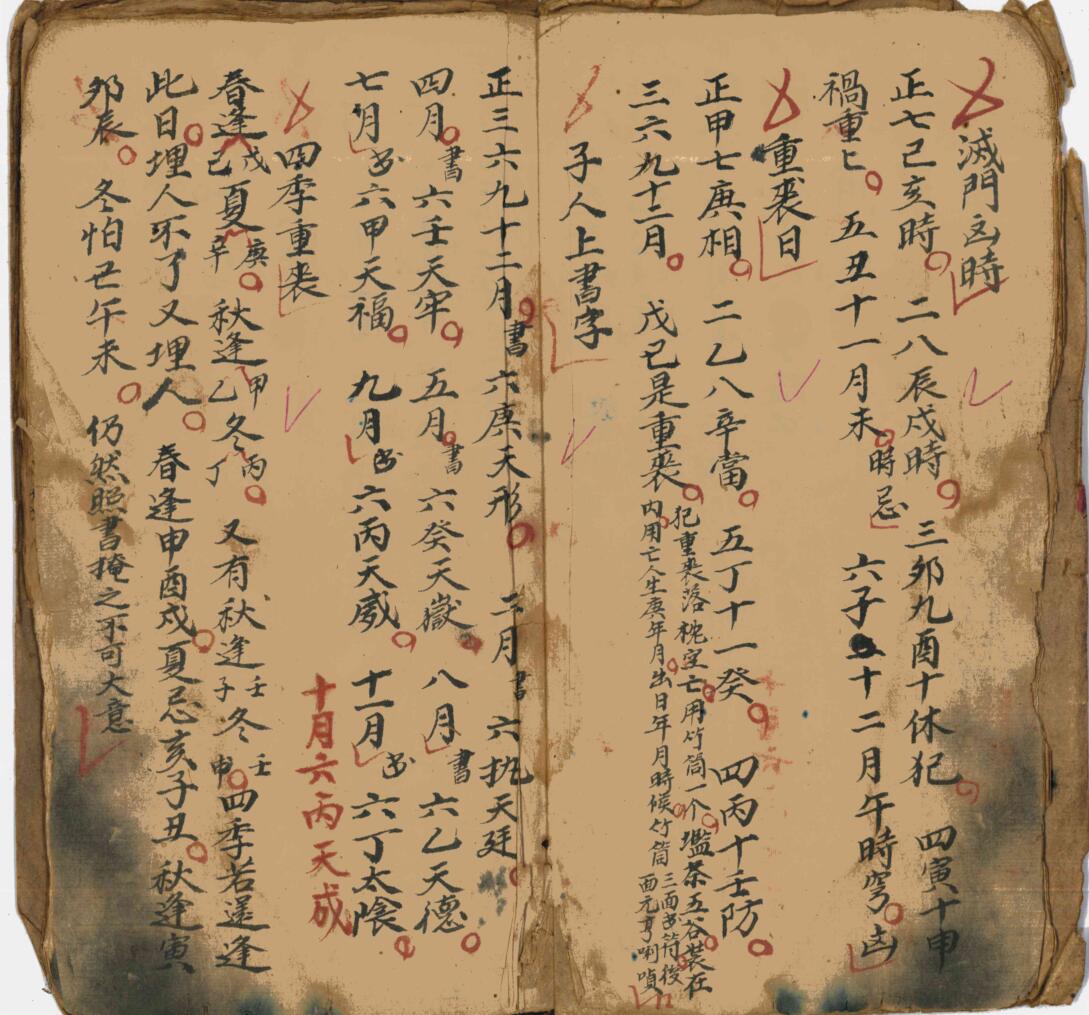 滅門凶時
正七己亥時 二八辰戌時 三卯九酉十休犯 四寅十申
禍重匕 五丑十一月未時忌 六子十二月午時穹凶
重喪日
正甲七庚相 二乙八辛當 五丁十一癸 四丙十壬防
三六九十二月 戊己是重喪
犯重喪落枕空亡用竹筒一个塩茶五谷裝在
内用亡人生庚年月出日年月時候竹筒三面書符後
面元亨唎嗩
子人上書字
正三六九十二月書六庚天刑 二月書六執天廷
四月書六壬天牢 五月書六癸天嶽 八月書六乙天德
七月書六甲天福 九月書六丙天威 十一月書六丁太陰
十月六丙天成
四季重喪
春逢戊己夏庚辛 秋逢甲乙冬丙丁 又有秋逢壬子冬壬申四季若還逢
此日埋人不了又埋人 春逢申酉戍夏忌亥子丑秋逢寅
卯辰 冬怕丑午未 仍然照書掩之不可大意